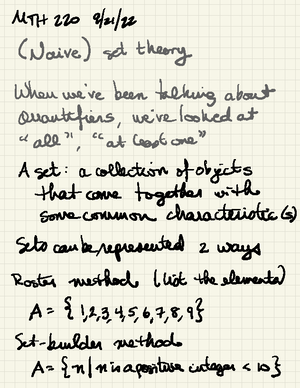 MTH 220 9/21/22
(Naive) set theory
When we've been talking about
Quantifiers, we've looked at
"all", "at least one"
A set: a collection of objects
that come together with
some common characteristic(s)
Sets can be represented 2 ways
Roster method (list the elements)
A = {1,2,3,4,5,6,7,8,9}
Set-builder method
A = {n | n is a positive integer < 10}